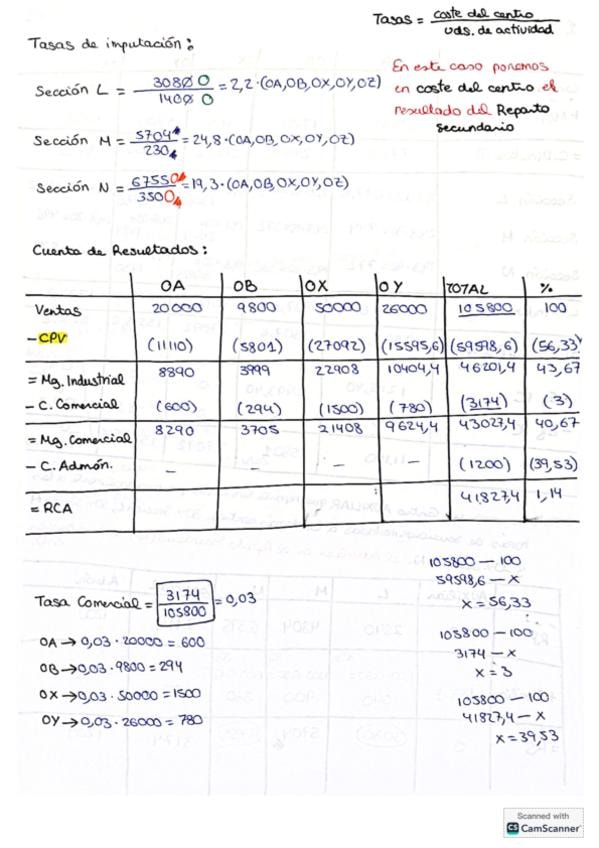 Tasas = coste del centro / uds. de actividad
Tasas de imputación:
En este caso ponemos
en coste del centro el
resultado del Reparto
Secundario
Sección L = 30800 / 14000 = 2,2 · (OA, OB, OX, OY, OZ)
Sección M = 5704 / 230 = 24,8 · (OA, OB, OX, OY, OZ)
Sección N = 67550 / 3500 = 19,3 · (OA, OB, OX, OY, OZ)
Cuenta de Resultados:
OA OB OX OY TOTAL %
Ventas 20000 9800 50000 26000 105800 100
- CPV (11110) (5801) (27092) (15595,6) (59598,6) (56,33)
= Mg. Industrial 8890 3999 22908 10404,4 46201,4 43,67
- C. Comercial (600) (294) (1500) (780) (3174) (3)
= Mg. Comercial 8290 3705 21408 9624,4 43027,4 40,67
- C. Admón. - - - - (1200) (39,53)
= RCA 41827,4 1,14
Tasa Comercial = 3174 / 105800 = 0,03
OA → 0,03 · 20000 = 600
OB → 0,03 · 9800 = 294
OX → 0,03 · 50000 = 1500
OY → 0,03 · 26000 = 780
105800 — 100
59598,6 — x
x = 56,33
105800 — 100
3174 — x
x = 3
105800 — 100
41827,4 — x
x = 39,53
Scanned with
CS CamScanner